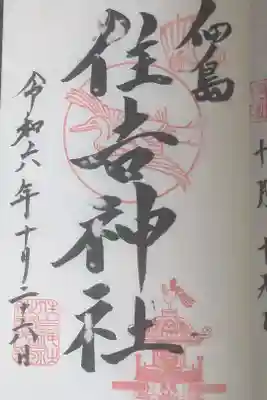 佃島
住吉神社
令和六年十月二十六日